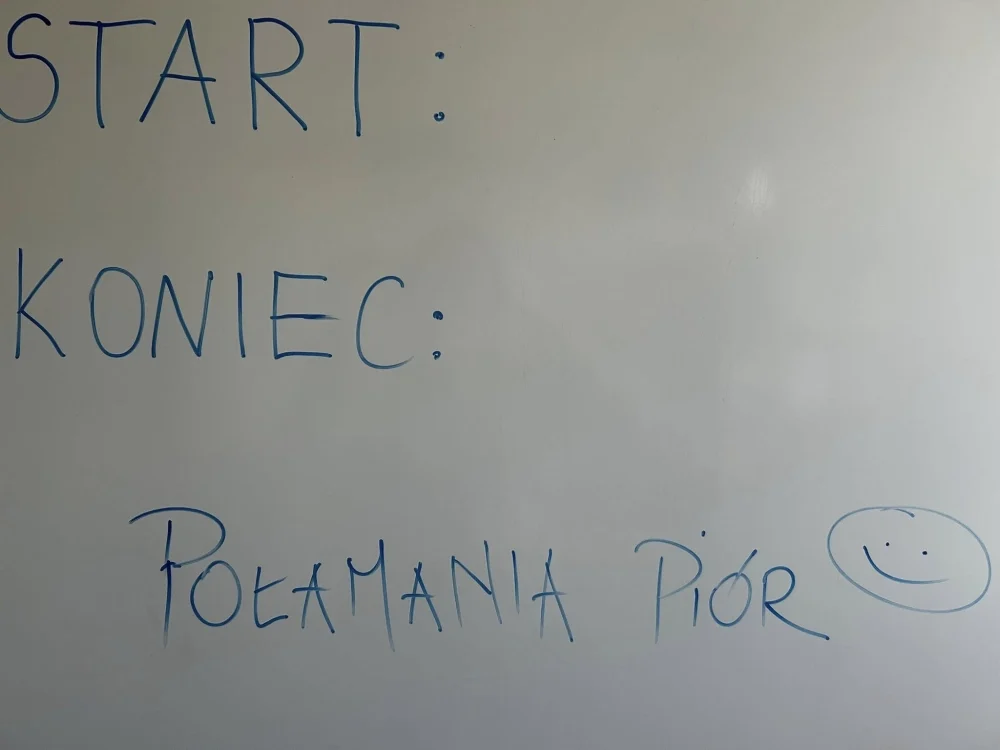 START:
KONIEC:
POŁAMANIA PIÓR